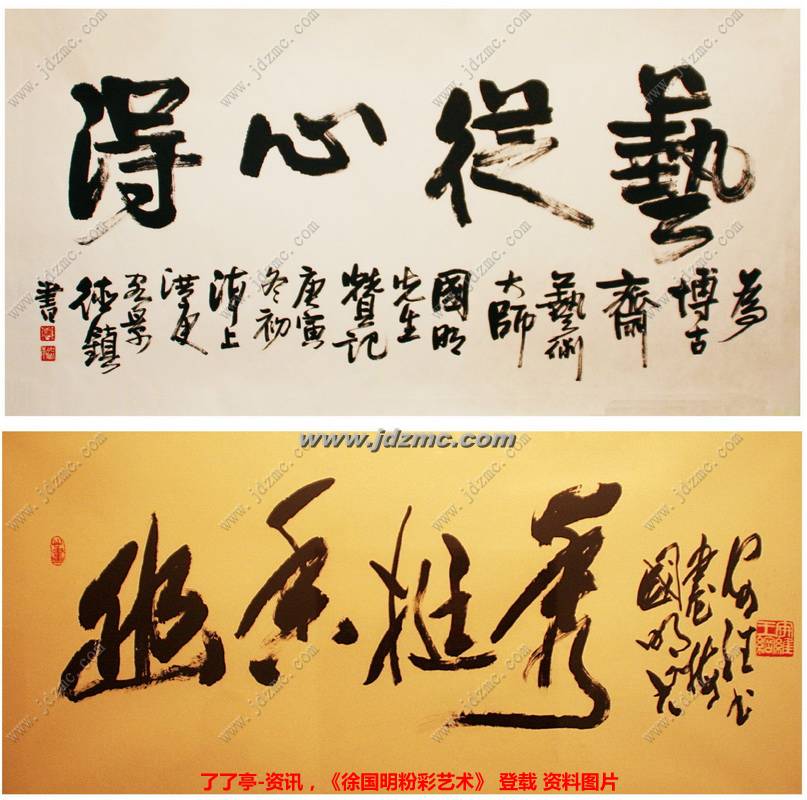 藝從心得
為
博古
齋
藝術
大師
國明
先生
贊記
庚寅
冬初
海上
洪
景
德鎮
書
www.jdzmc.com
秀挺香幽
國明
了了亭-资讯，《徐国明粉彩艺术》 登载 资料图片